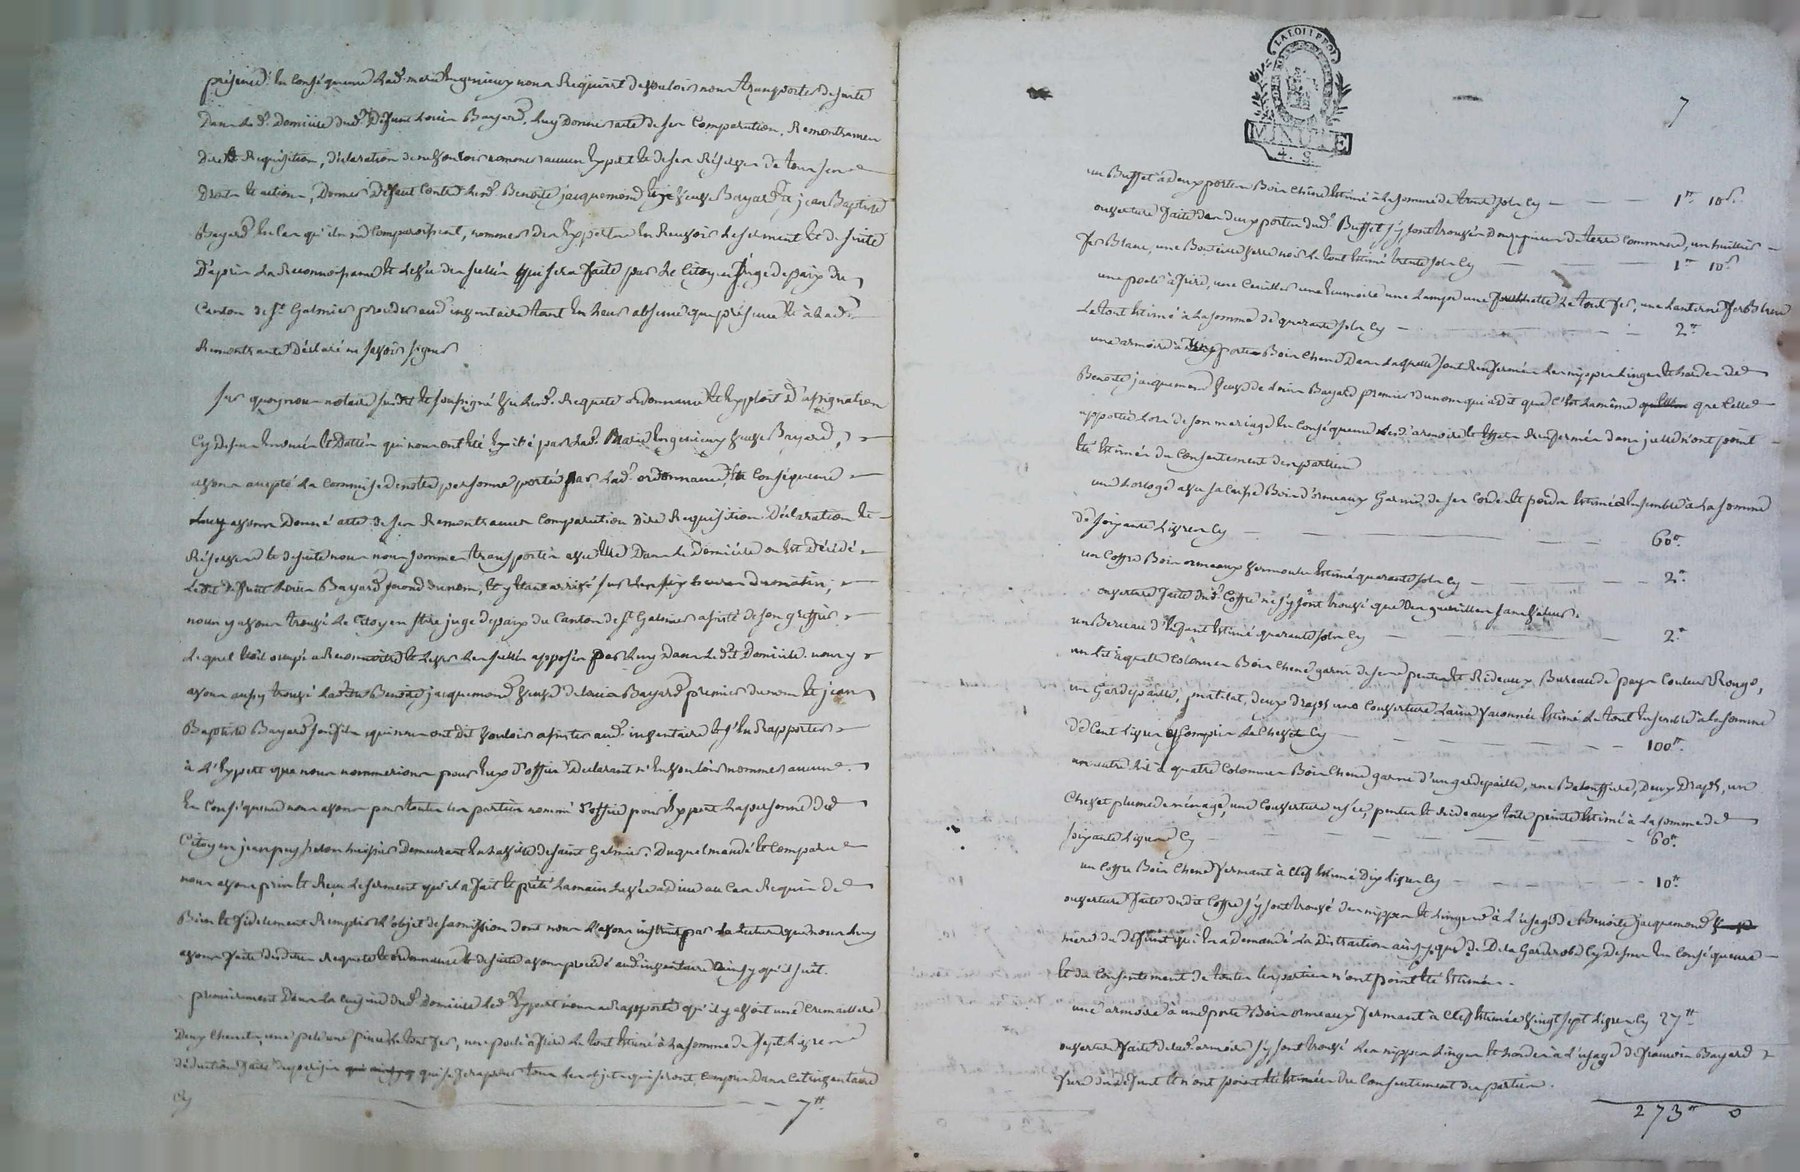 présence. En conséquence lad. marie Ingenieux nous Requiert de vouloir nous transporter de suite
Dans Led. Domicile dud. Défunt Louis Bayard, Luy Donner acte de ses Comparution, Remontrances
dire et Requisition, déclaration de ne vouloir nommer aucun Expert et de ses Réserves de tous ses
Droits et actions, Donner défaut contre lad. Benoite jacquemond veuve Bayard et jean Baptiste
Bayard En Cas qu'ils ne comparoissent, nommer des Experts En Recevoir Le serment et de suite
D'après La Reconnoissance et levée des scellés qui sera faite par Le Citoyen juge de paix du
Canton de St. Galmier proceder aud. inventaire tant En Leur absence que présence et a lad.
Remontrante Déclaré ne savoir signer
Sur quoy nous notaire susdit et soussigné vu Lesd. Requete ordonnance et Exploit D'assignation
Cy dessus Enoncés et Dattés qui nous ont été Exibé par lad. Marie Ingenieux veuve Bayard,
avons accepté La Commise de notre personne portée par Lad. ordonnance, En Conséquence
Luy avons Donné acte de ses Remontrances Comparution Dire Requisition Déclaration et
Réserves et de suite nous nous sommes transportés avec Elle Dans Le Domicile ou Est décédé
Ledit défunt Louis Bayard second du nom, et y Etant arrivé sur Les six heures du matin,
nous y avons trouvé Le Citoyen juge de paix du Canton de St. Galmier assisté de son greffier
Lequel Etoit occupé a Reconnoitre et Lever Les scellés apposés par Luy Dans Le dit Domicile. nous y
avons aussy trouvé Benoite jacquemond veuve de Louis Bayard premier du nom et jean
Baptiste Bayard son fils, qui nous ont dit vouloir assister aud. inventaire et s'En Rapporter
à L'Expert que nous nommerions pour Eux d'office Declarant n'En vouloir nommer aucun.
En Conséquence nous avons pour toutes Les parties nommé d'office pour Expert La personne de
Citoyen jean huissier Demeurant En La ville de saint Galmier. Duquel mandé et Comparu
nous avons pris et Reçu Le serment qu'il a fait et prété La main Levée a dieu au Cas Requis de
Bien et fidelement Remplir L'objet de sa mission dont nous L'avons instruit par La Lecture que nous Luy
avons faite desdites Requete et ordonnance et de suite avons procédé aud. inventaire ainsy qu'il suit.
premierement Dans La Cuisine dud. Domicile Led. Expert nous a Rapporté qu'il y avoit une Cremaillere
Deux Chenets, une pele une pince Le tout fer, une poele à frire Le tout Estimé à La somme de sept Livres
déduction faite qui se fera pour tous Les objets qui seront Compris Dans Cet inventaire
Cy 7tt.
LA LOI LE ROI
MINUTE
4. S.
7
un Buffet à deux portes Bois Chene Estimé à La somme de trente sols Cy 1tt 10s.
ouverture faite des deux portes dud. Buffet s'y sont trouvés Douze pieces de terre Commune, un huillier
fer Blanc, une Bouteille verre noir Le tout Estimé trente sols Cy 1tt 10s
une poele à frire, une Cuiller une Ecumoire une Lampe une fourchette Le tout fer, une Lanterne fer Blanc
Le tout Estimé à La somme de quarante sols Cy 2tt
une armoire à deux portes Bois Chene Dans Laquelle sont Renfermés Les nippes Linges et hardes de
Benoite jacquemond veuve de Louis Bayard premier du nom qui a dit que C'est La même que Celle
apportée Lors de son mariage En Conséquence Lesd. armoire et Effets Renfermés dans jcelle n'ont point
Eté Estimés du Consentement des parties
une horloge avec sa Caisse Bois d'ormeaux Garnie de ses Cordes et poids Estimée Ensemble à La somme
de soixante Livres Cy 60tt.
un Coffre Bois ormeaux vermoulu Estimé quarante sols Cy 2tt.
ouverture faite dud. Coffre ne s'y sont trouvé que des guenilles sans valeur.
un Berceau d'Enfant Estimé quarante sols Cy 2tt
un Lit à quatre Colonnes Bois Chene garni de ses pentes et Rideaux Bureau de pays Couleur Rouge,
un Gardepaille, matelat, deux draps une Couverture Laine façonnée Estimé Le tout Ensemble à La somme
de Cent Livres y Compris Le Chevet Cy 100tt.
un autre Lit à quatre Colonnes Bois Chene garni d'un gardepaille, une Balouffiere, Deux Draps, un
Chevet plume de ménage, une Couverture usée, pentes et Rideaux toile peinte Estimé à La somme de
soixante Livres Cy 60tt.
un Coffre Bois Chene fermant à Clef Estimé Dix Livres Cy 10tt
ouverture faite dudit Coffre s'y sont trouvé des nippes et Linges à L'usage de Benoite jacquemond
mère du défunt qui En a demandé La Distraction ainsy que De La Garderobe Cy dessus En Conséquence
et du Consentement de toutes Les parties n'ont point Eté Estimés.
une armoire à une porte Bois ormeaux fermant à Clef Estimée vingt sept Livres Cy 27tt
ouverture faite de lad. armoire s'y sont trouvé Les nippes Linges et hardes à L'usage de francois Bayard
frere du défunt et n'ont point Eté Estimés Du Consentement des parties.
273tt 0